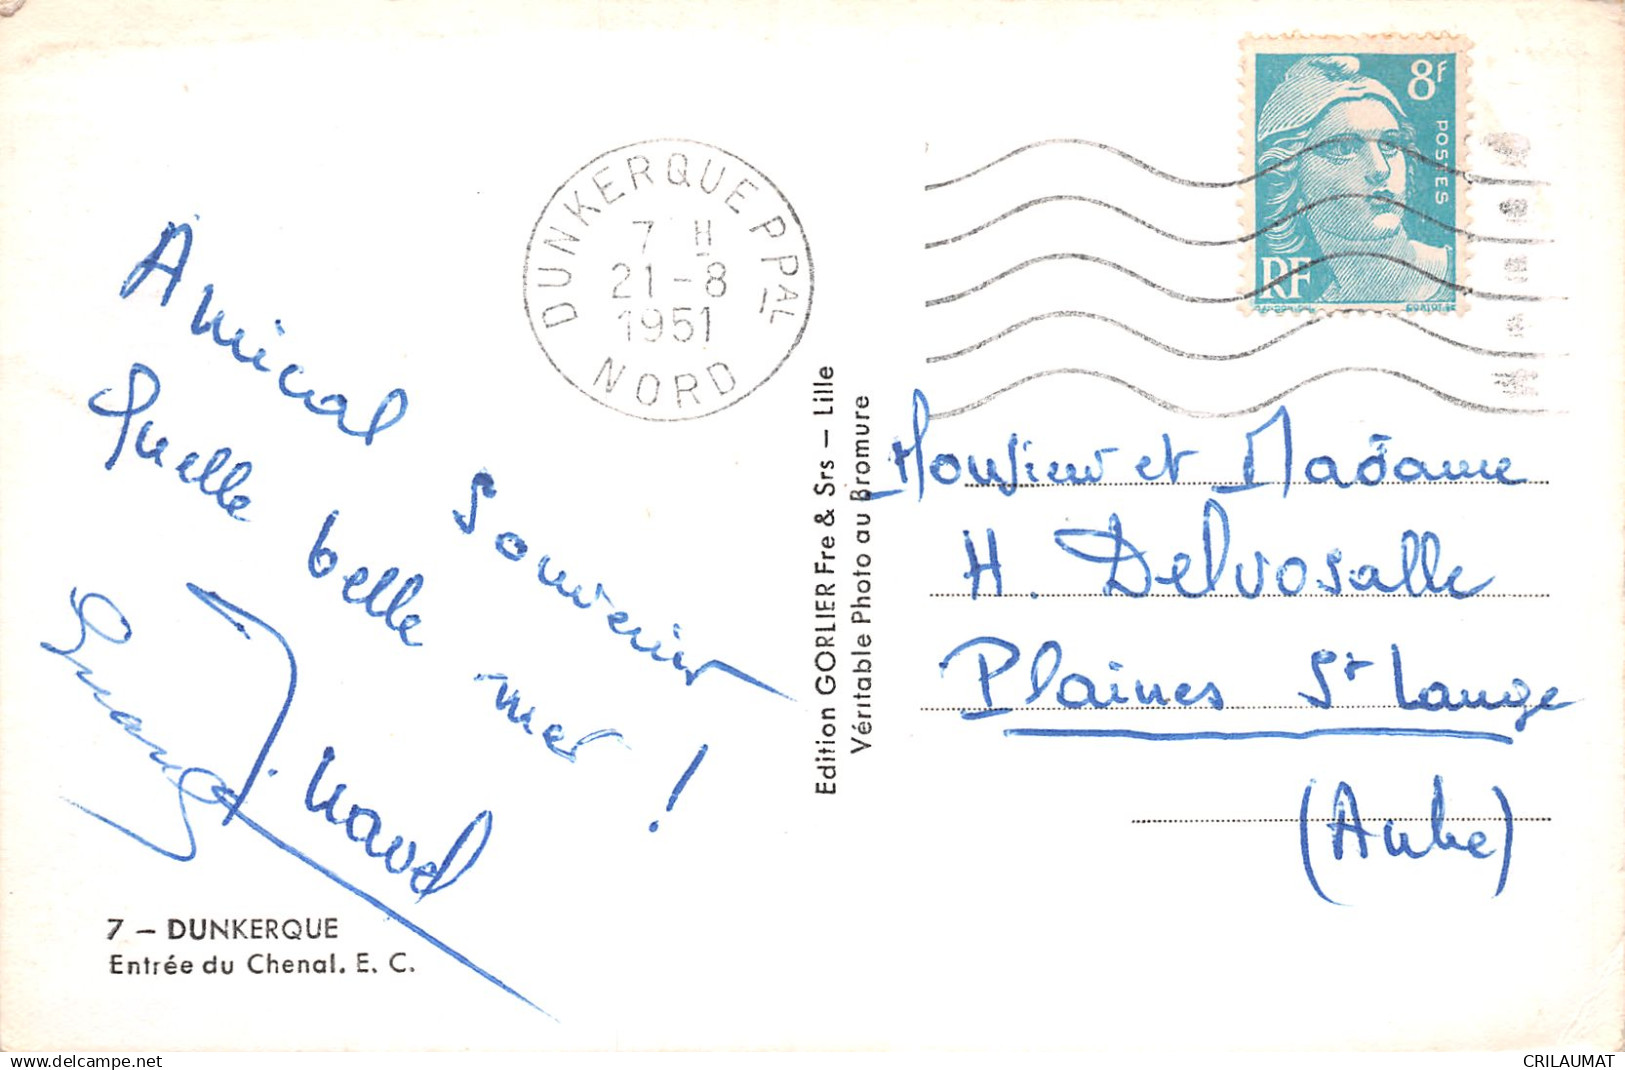 8F
POSTES
RF
DUNKERQUE PPAL
7 H
21-8
1951
NORD
Amical Souvenir
Quelle belle mer !
7 — DUNKERQUE
Entrée du Chenal. E. C.
Edition GORLIER Fre & Srs — Lille
Véritable Photo au Bromure
Monsieur et Madame
H. Delvosalle
Plaines St Lange
(Aube)
www.delcampe.net
CRILAUMAT